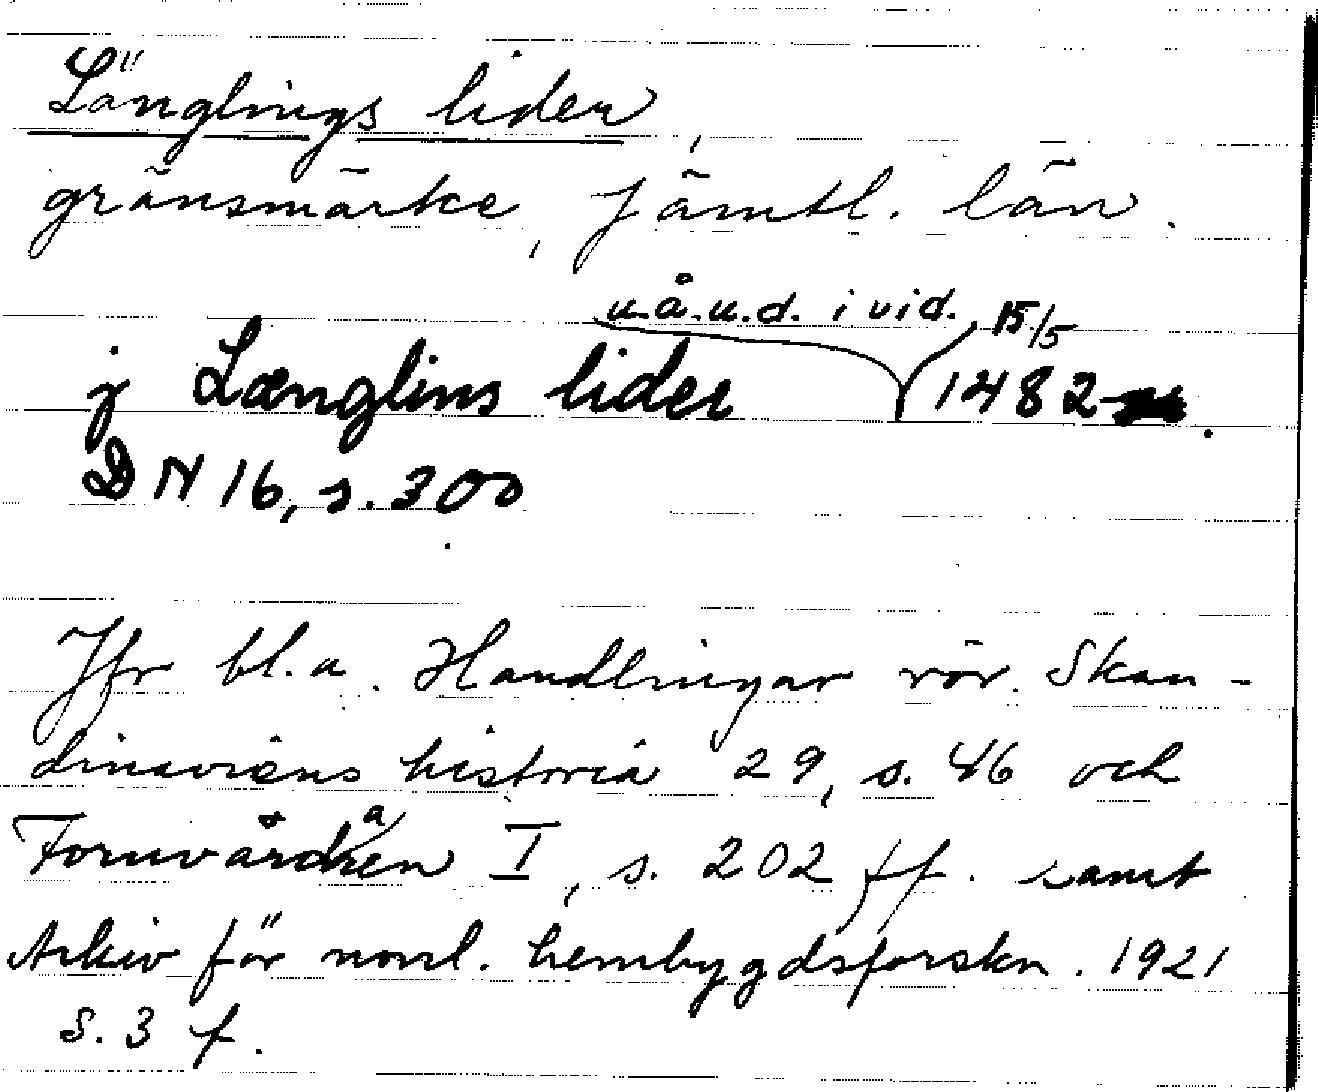 Länglings lider,
gränsmärke, Jämtl. län.
u.å.u.d. i vid. 15/5
j Længlins lider (1482.
DN 16, s. 300
Jfr bl.a. Handlingar rör. Skan-
dinaviens historia 29, s. 46 och
Fornvårdaren I, s. 202 ff. samt
Arkiv för norrl. hembygdsforskn. 1921
s. 3 f.